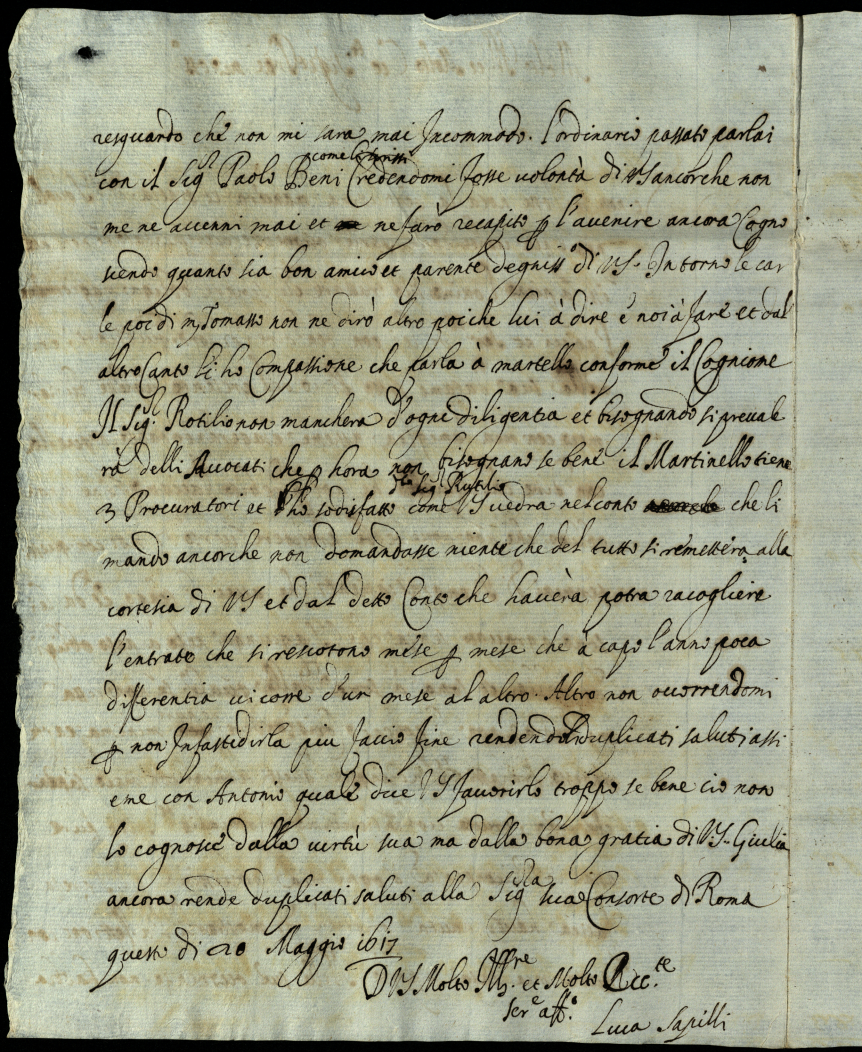 resguardo che non mi sara mai Incommodo. l'ordinario passato parlai
come li scrissi
con il Sig.r Paolo Beni Credendomi fosse volontà di VS ancorche non
me ne accenni mai et ne farò recapito p l'avenire ancora Cogno
scendo quanto sia bon amico et parente degniss.o di VS. Intorno le car
le poi di m, Tomasso non ne dirò altro poiche lui à dire e noi à fare et dal
altro Canto li ho Compassione che parla à martello conforme il Cogniome
Il Sig.r Rotilio non manchera d'ogni diligentia et bisognando si prevale
rà delli Avocati che p hora non bisognano se bene il Martinello tiene
d.o Sig.r Rutilio
3 Procuratori et ho sodisfatto come VS vedra nel conto che li
mando ancorche non domandasse niente che del tutto si remetterà alla
cortesia di VS et dal detto Conto che haverà potra racogliere
l'entrate che si rescotono mese p mese che à capo l'anno poca
differentia vi corre d'un mese al altro. Altro non occorrendomi
p non Infastidirla piu faccio fine rendendoli duplicati saluti assi
eme con Antonio quale dice VS favorirlo troppo se bene cio non
lo cognosce dalla virtù sua ma dalla bona gratia di VS. Giulia
ancora rende duplicati saluti alla Sig.ra sua Consorte di Roma
questo di 20 Maggio 1617
D VS Molto Ill.re et Molto Ecc.te
Ser.e aff.o
Luca Sapilli